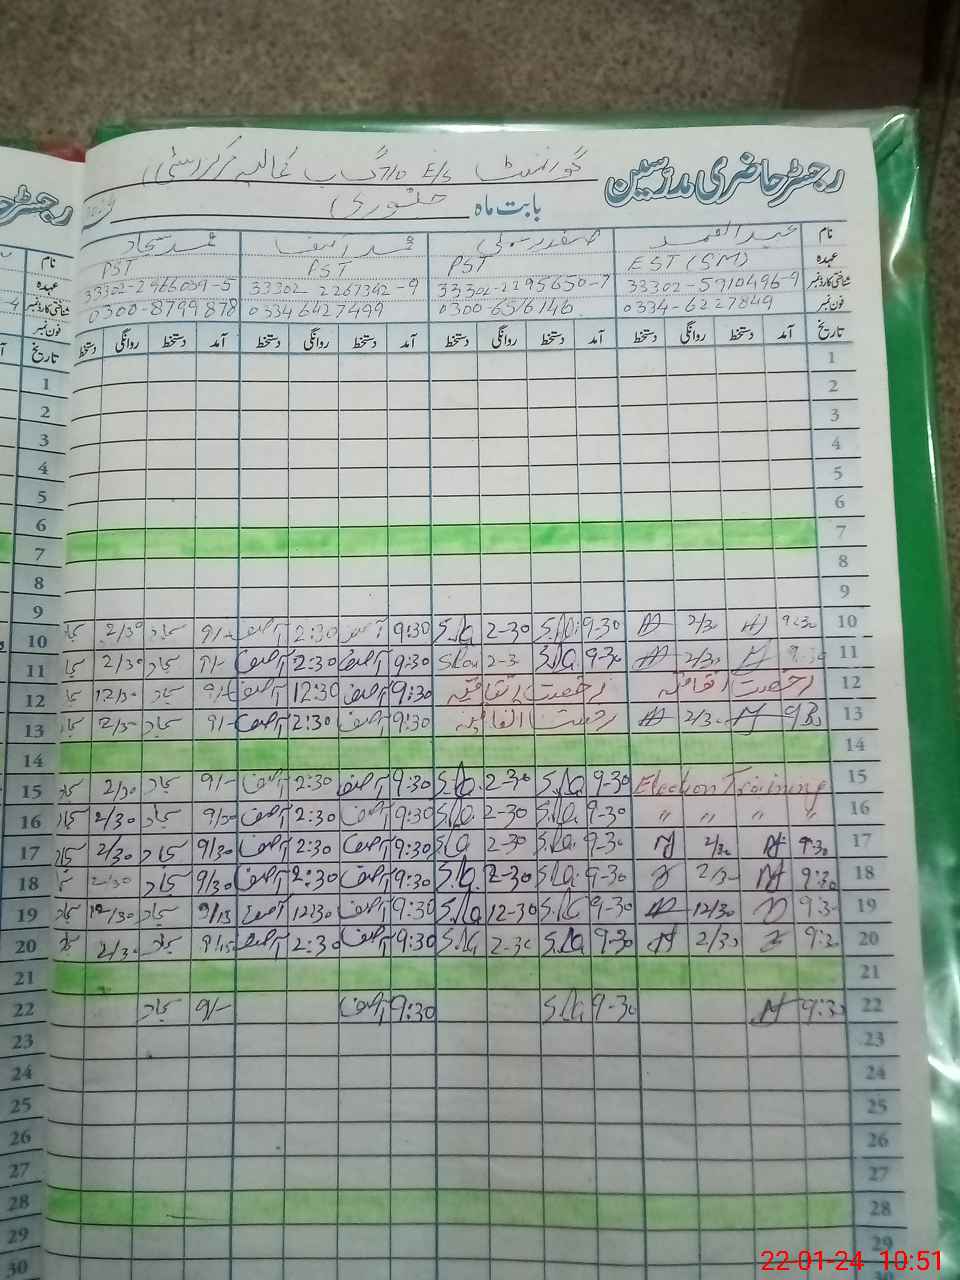 رجسٹر حاضری مدرسین
گورنمنٹ E/S 710 گ ب
بابت ماہ جنوری
نام عبدالصمد صفدر علی محمد آصف محمد سجاد
عہدہ EST (SM) PST PST PST
شناختی کارڈ نمبر 33302-5910496-9 33302-2295650-7 33302-2267342-9 33302-2966059-5
فون نمبر 0334-6227849 0300-6516146 03346427499 0300-8799878
تاریخ آمد دستخط روانگی دستخط آمد دستخط روانگی دستخط آمد دستخط روانگی دستخط آمد دستخط روانگی دستخط
1
2
3
4
5
6
7
8
9
10 9:30 2/30 9-30 S.Ja 2-30 S.Ja 9:30 آصف 2:30 آصف 9/- سجاد 2/30 سجاد
11 9:30 2/30 9-30 S.Ja 2-30 S.Ja 9:30 آصف 2:30 آصف 9/- سجاد 2/30 سجاد
12 رخصت اتفاقیہ رخصت اتفاقیہ 9:30 آصف 12:30 آصف 9/- سجاد 12/30 سجاد
13 2/30 رخصت اتفاقیہ 9:30 آصف 2:30 آصف 9/- سجاد 2/30 سجاد
14
15 Election Training 9-30 S.Ja 2-30 S.Ja 9:30 آصف 2:30 آصف 9/- سجاد 2/30 سجاد
16 " " " " 9-30 S.Ja 2-30 S.Ja 9:30 آصف 2:30 آصف 9/30 سجاد 2/30 سجاد
17 9:30 2/30 9-30 S.Ja 2-30 S.Ja 9:30 آصف 2:30 آصف 9/30 سجاد 2/30 سجاد
18 9:30 2/30 9-30 S.Ja 2-30 S.Ja 9:30 آصف 2:30 آصف 9/30 سجاد 2/30 سجاد
19 9:30 12/30 9-30 S.Ja 12-30 S.Ja 9:30 آصف 12:30 آصف 9/15 سجاد 12/30 سجاد
20 9:30 2/30 9-30 S.Ja 2-30 S.Ja 9:30 آصف 2:30 آصف 9/15 سجاد 2/30 سجاد
21
22 9:30 9-30 S.Ja 9:30 آصف 9/- سجاد
23
24
25
26
27
28
29
22-01-24 10:51